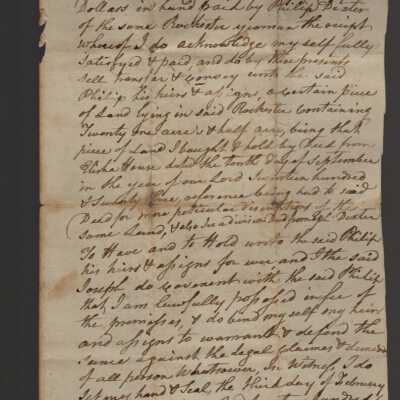 Dollars in hand paid by Philip Dexter
of the same Rochester yeoman the receipt
whereof I do acknowledge my self fully
satisfyed & paid, and do by these presents
sell transfer & Convey unto the said
Philip his hirs & asigns, a certain piece
of Land lying in said Rochester Containing
Twenty one acre & half acre, being that
piece of Land I bought & hold by Deed from
Elisha House dated the tenth Day of September
in the year of our Lord Seventeen hundred
& Ninty reference being had to said
Deed for more perticular discription of the
same Land, & also in a division Dexter
To Have and to Hold unto the said Philip
his hiers & assigns for ever and I the said
Joseph do Covenant with the said Philip
that I am lawfully possessed in fee of
the premisses, & do bind my self my heirs
and assigns to warrante & defend the
same against the Legal Claimes & Demands
of all person Whatsoever, In Witness, I do
set my hand & Seal, the third day of February
hundred